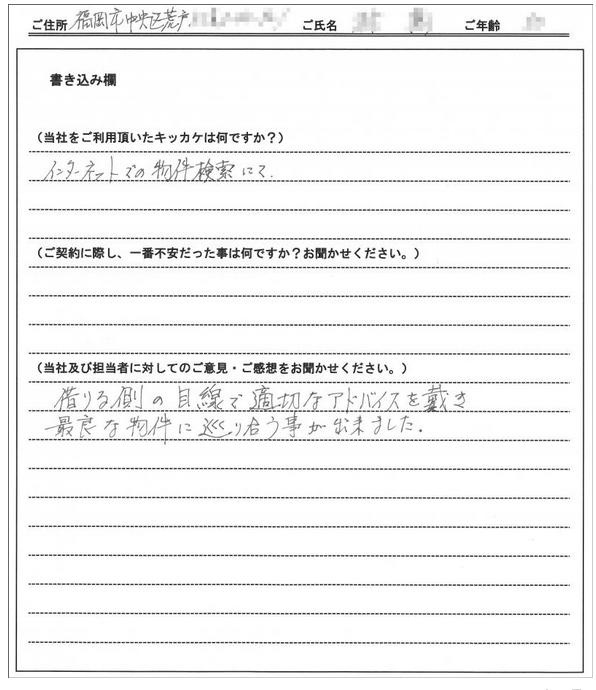 ご住所 福岡市中央区荒戸 ご氏名 ご年齢
書き込み欄
(当社をご利用頂いたキッカケは何ですか?)
インターネットでの物件検索にて.
(ご契約に際し、一番不安だった事は何ですか?お聞かせください。)
(当社及び担当者に対してのご意見・ご感想をお聞かせください。)
借りる側の目線で適切なアドバイスを戴き
最良な物件に巡り合う事が出来ました.